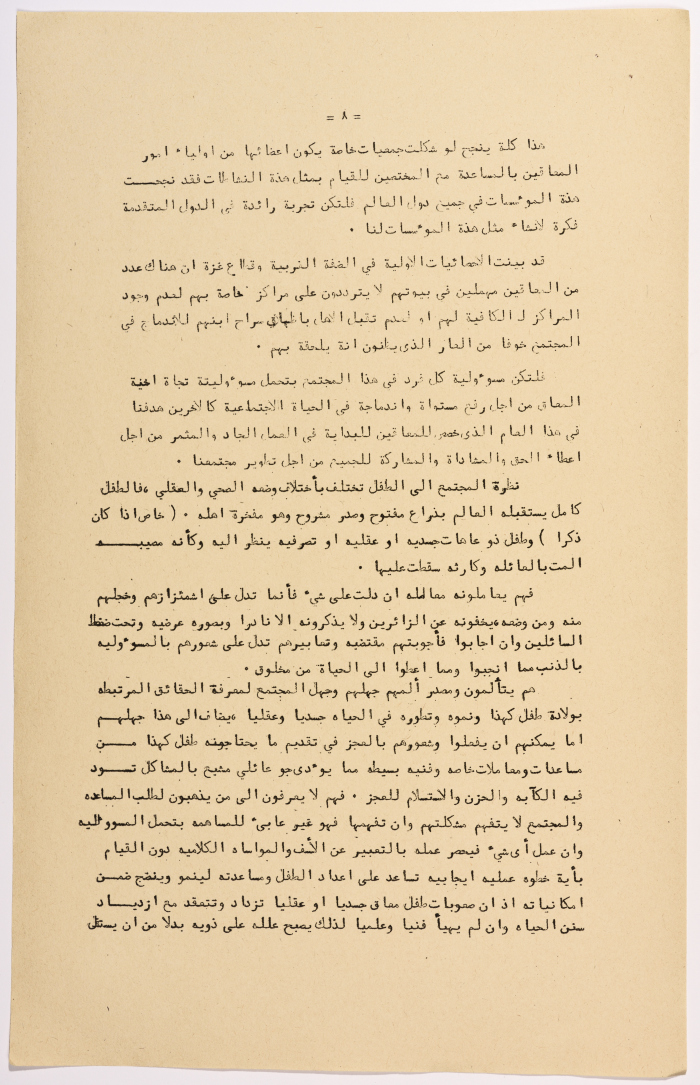 = ٨ =
هذا كلة ينجح لو شكلت جمعيات خاصة يكون اعضائها من اولياء امور
المعاقين بالمساعدة مع المختصين للقيام بمثل هذة النشاطات فقد نجحت
هذة الموءسسات في جميع دول العالم فلتكن تجربة رائدة في الدول المتقدمة
فكرة لانشاء مثل هذة الموءسسات لنا .
قد بينت الاحصائيات الاولية في الضفة الغربية وقطاع غزة ان هناك عدد
من المعاقين مهملين في بيوتهم لا يترددون على مراكز خاصة بهم لعدم وجود
المراكز الكافية لهم او لعدم تقبل الاهل باطلاق سراح ابنهم للاندماج في
المجتمع خوفا من العار الذى يظنون انة يلحقة بهم .
فلتكن مسوءولية كل فرد في هذا المجتمع يتحمل مسوءوليتة تجاة اخية
المعاق من اجل رفع مستواة واندماجة في الحياة الاجتماعية كالاخرين هدفنا
في هذا العام الذى خصص للمعاقين للبداية في العمل الجاد والمثمر من اجل
اعطاء الحق والمشاداة والمشاركة للجميع من اجل تطوير مجتمعنا .
نظرة المجتمع الى الطفل تختلف بأختلاف وضعه الصحي والعقلي ،فالطفل
كامل يستقبله العالم بذراع مفتوح وصدر مشروح وهو مفخرة اهله . ( خاص اذا كان
ذكرا ) وطفل ذو عاهات جسديه او عقليه او تصرفيه ينظر اليه وكأنه مصيبه
المت بالعائله وكارثه سقطت عليها .
فهم يعاملونه معامله ان دلت على شيء فأنما تدل على اشمئزازهم وخجلهم
منه ومن وضعه ،يخفونه عن الزائرين ولا يذكرونه الا نادرا وبصوره عرضيه وتحت ضغط
السائلين وان اجابوا فأجوبتهم مقتضبه وتعابيرهم تدل على شعورهم بالمسوءوليه
بالذنب مما انجبوا ومما اعطوا الى الحياة من مخلوق .
هم يتألمون ومصدر ألمهم جهلهم وجهل المجتمع لمعرفة الحقائق المرتبطه
بولادة طفل كهذا ونموه وتطوره في الحياه جسديا وعقليا ،يضاف الى هذا جهلهم
اما يمكنهم ان يفعلوا وشعورهم بالعجز في تقديم ما يحتاجونه طفل كهذا من
مساعدات ومعاملات خاصه وفنيه بسيطه مما يوءدى جو عائلي مشبع بالمشاكل تسود
فيه الكآبه والحزن والاستسلام للعجز . فهم لا يعرفون الى من يذهبون لطلب المساعده
والمجتمع لا يتفهم مشكلتهم وان تفهمها فهو غير عابىء للمساهمه بتحمل المسووليه
وان عمل أى شيء فيحصر عمله بالتعبير عن الأسف والمواساه الكلاميه دون القيام
بأية خطوه عمليه ايجابيه تساعد على اعداد الطفل ومساعدته لينمو وينضج ضمن
امكانياته اذ ان صعوبات طفل معاق جسديا او عقليا تزداد وتتعقد مع ازدياد
سنن الحياه وان لم يهيأ فنيا وعلميا لذلك يصبح عاله على ذويه بدلا من ان يستقل